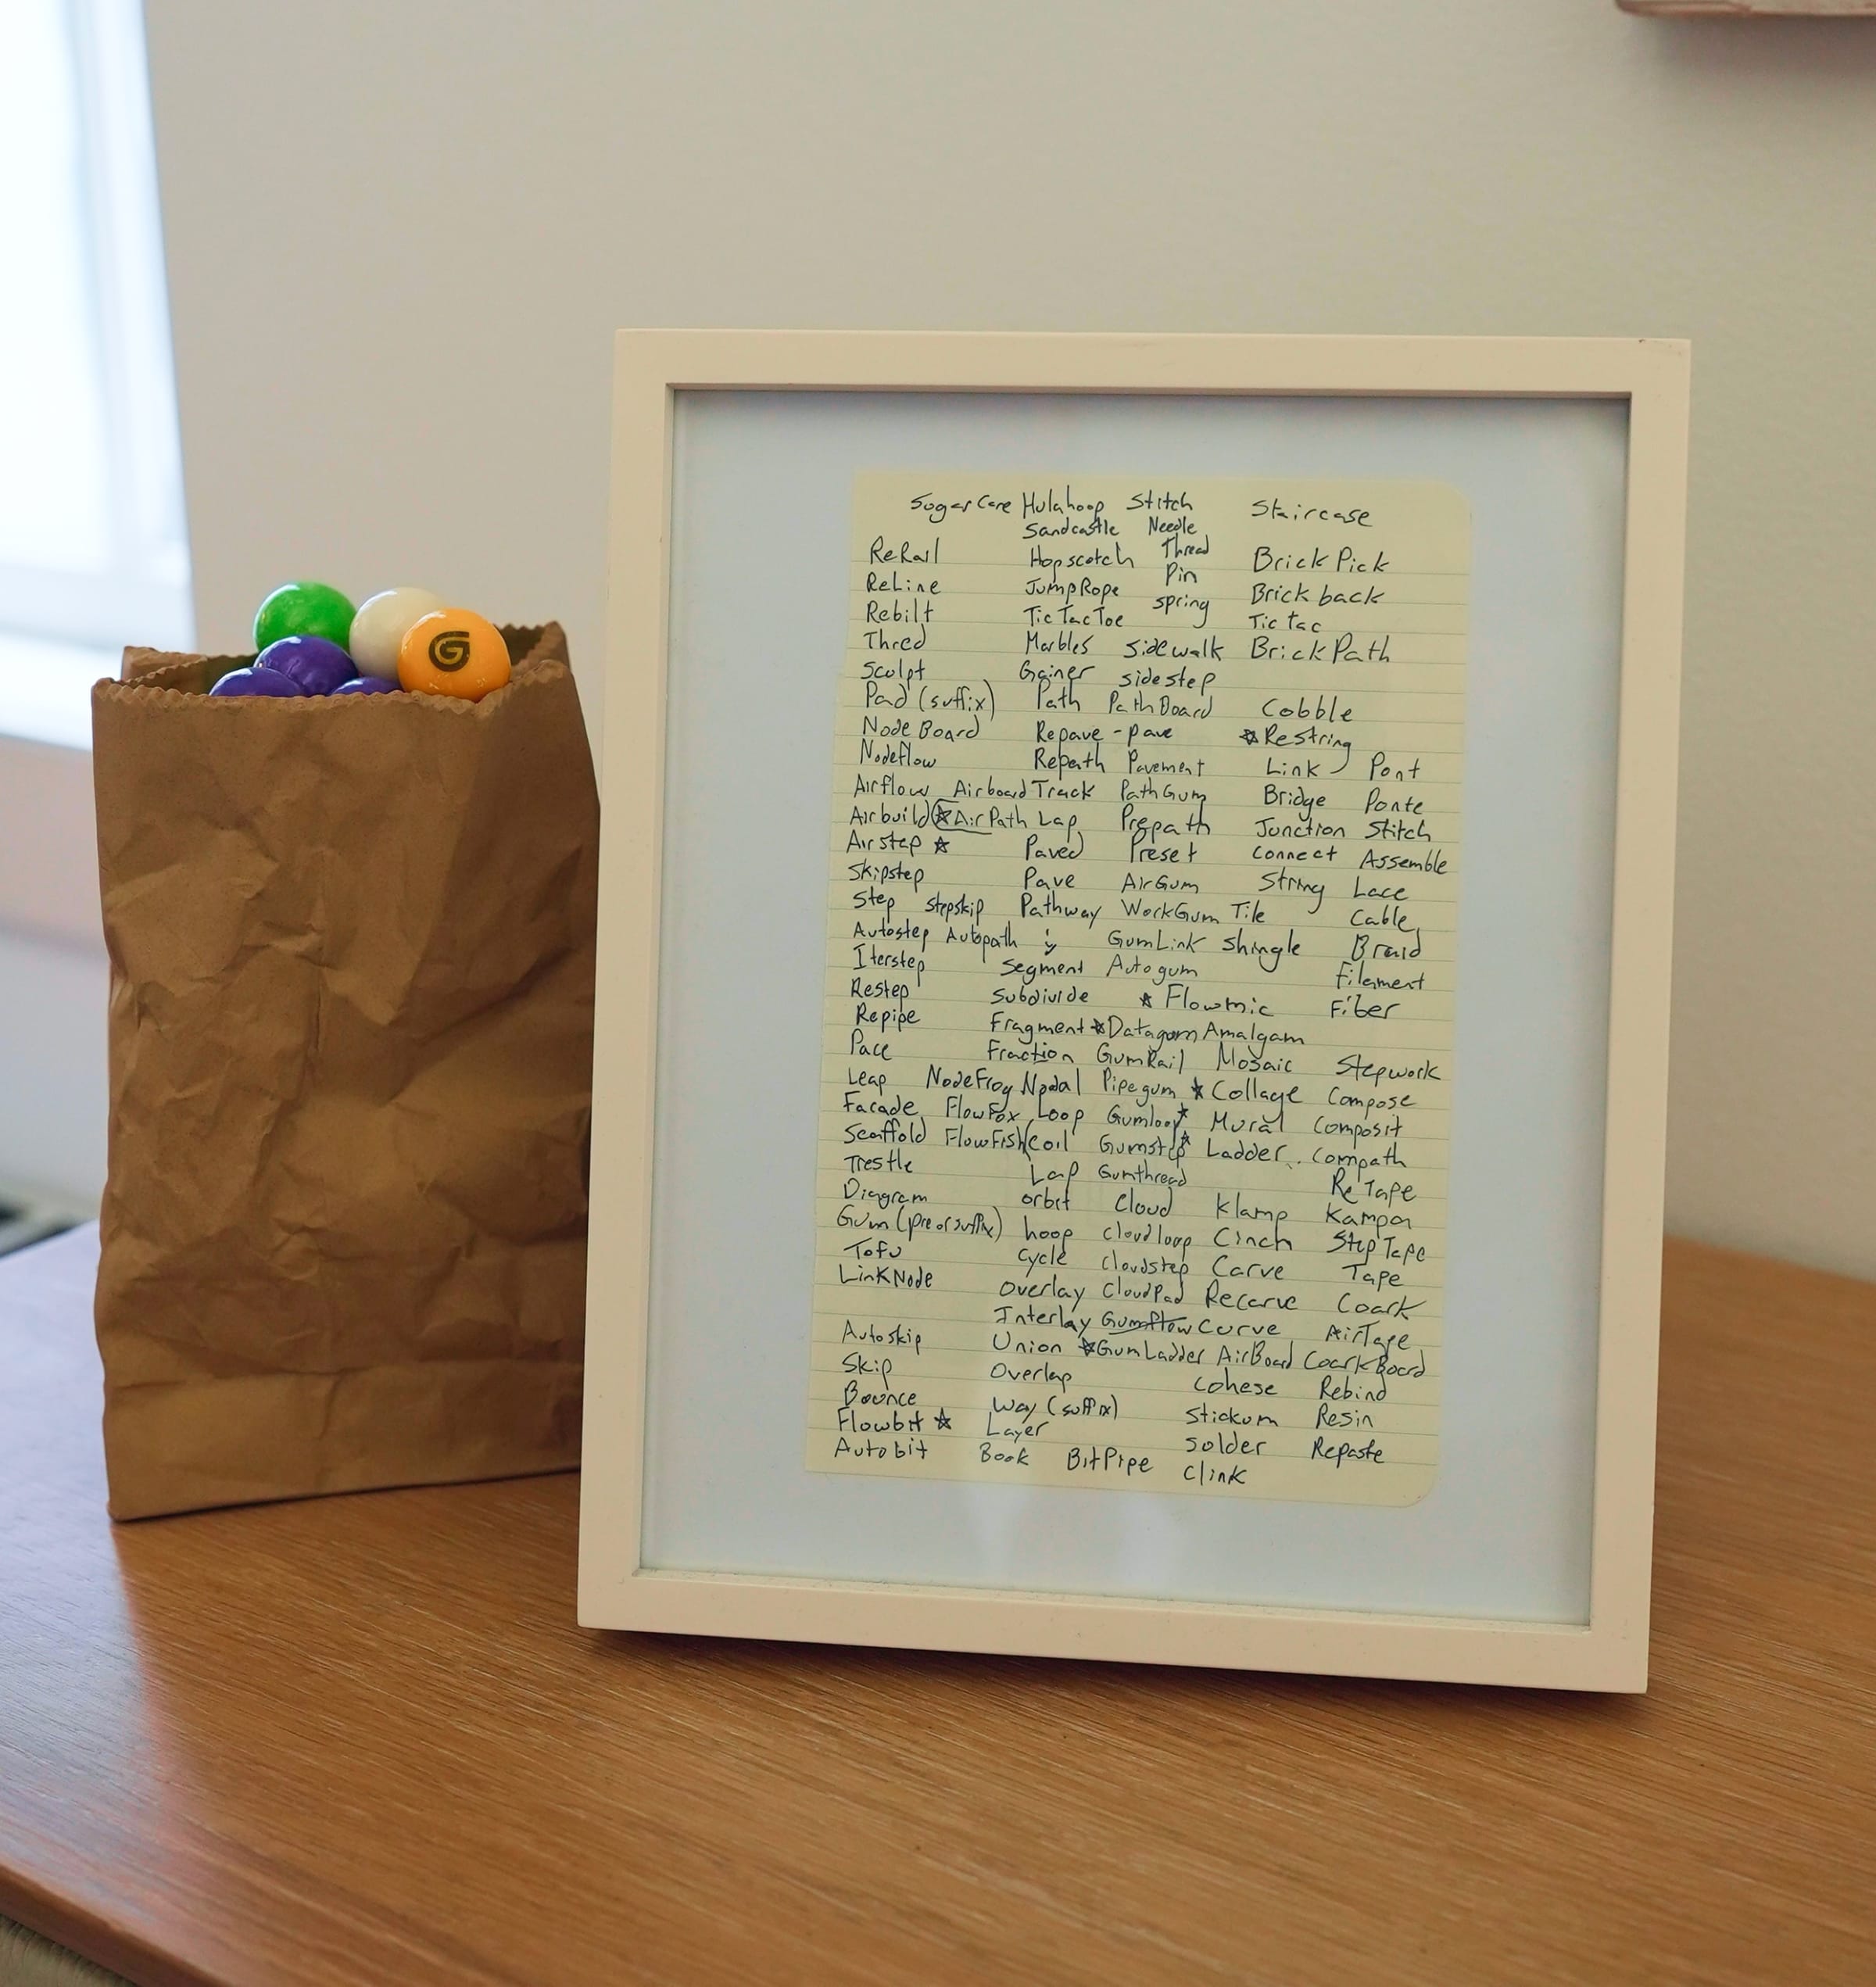 G
Sugar Hulahoop Stitch Staircase
Sandcastle Needle
ReRail Hopscotch Thread BrickPick
ReLine JumpRope Pin Brickback
Rebilt TicTacToe spring Tictac
Thred Marbles sidewalk BrickPath
Sculpt Gainer sidestep
Pad (suffix) Path PathBoard Cobble
NodeBoard Repave - pave ☆Restring
Nodeflow Repath Pavement Link Pont
Airflow Airboard Track PathGum Bridge Ponte
Airbuild ☆AirPath Lap Prepath Junction Stitch
Airstep ☆ Paved Preset Connect Assemble
Skipstep Pave AirGum String Lace
Step stepskip Pathway WorkGum Tile Cable
Autostep Autopath GumLink Shingle Braid
Iterstep Segment Autogum Filament
Restep Subdivide ☆ Flowmic Fiber
Repipe Fragment ☆Datagum Amalgam
Pace Fraction GumRail Mosaic Stepwork
Leap NodeFrog Nodal Pipegum ☆Collage Compose
Facade FlowFox Loop Gumloop☆ Mural Composit
Scaffold FlowFish Coil Gumstep☆ Ladder Compath
Trestle Lap Gumthread ReTape
Diagram orbit Cloud Klamp Kampa
Gum (pre or suffix) hoop cloudloop Cinch StepTape
Tofu cycle cloudstep Carve Tape
LinkNode Overlay CloudPad Recarve Coark
Interlay Gumflow Curve AirTape
Autoskip Union ☆GumLadder AirBoard CoarkBoard
Skip Overlap Cohese Rebind
Bounce Way (suffix) Stickum Resin
Flowbit ☆ Layer Solder Repaste
Autobit Book BitPipe Clink